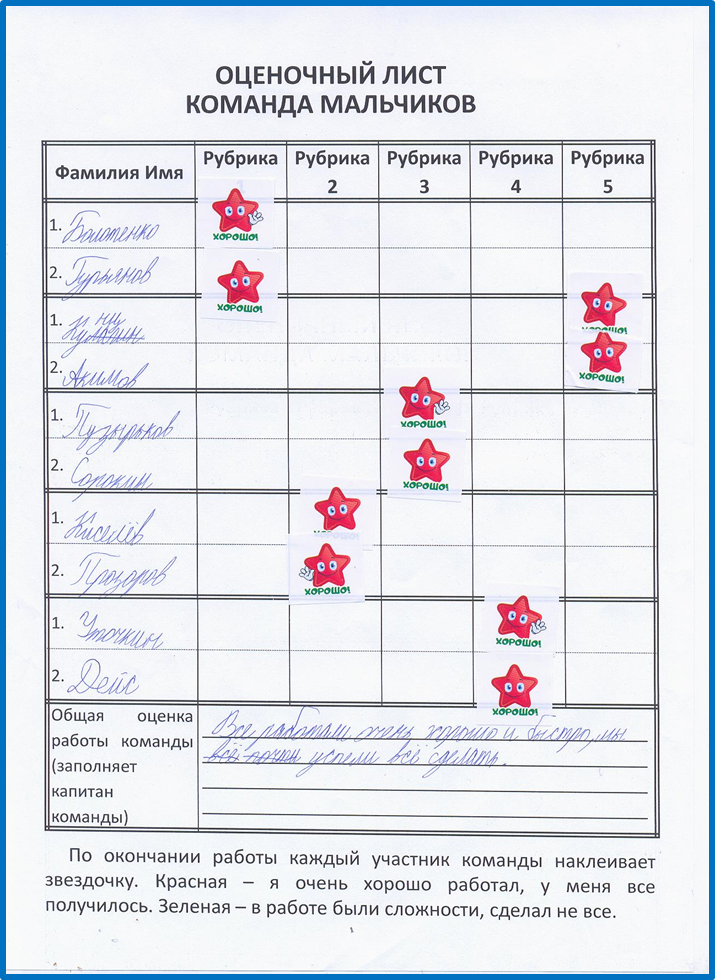 ОЦЕНОЧНЫЙ ЛИСТ
КОМАНДА МАЛЬЧИКОВ
Фамилия Имя
Рубрика
Рубрика 2
Рубрика 3
Рубрика 4
Рубрика 5
1. Болотенко
ХОРОШО!
2. Гурьянов
ХОРОШО!
1.
ХОРОШО!
2. Акимов
ХОРОШО!
1. Пузырьков
ХОРОШО!
2. Сорокин
ХОРОШО!
1. Киселёв
2. Прозоров
ХОРОШО!
1. Уточкин
ХОРОШО!
2. Дейс
ХОРОШО!
Общая оценка
работы команды
(заполняет
капитан
команды)
Все работали очень хорошо и быстро, мы
успели всё сделать.
По окончании работы каждый участник команды наклеивает
звездочку. Красная – я очень хорошо работал, у меня все
получилось. Зеленая – в работе были сложности, сделал не все.